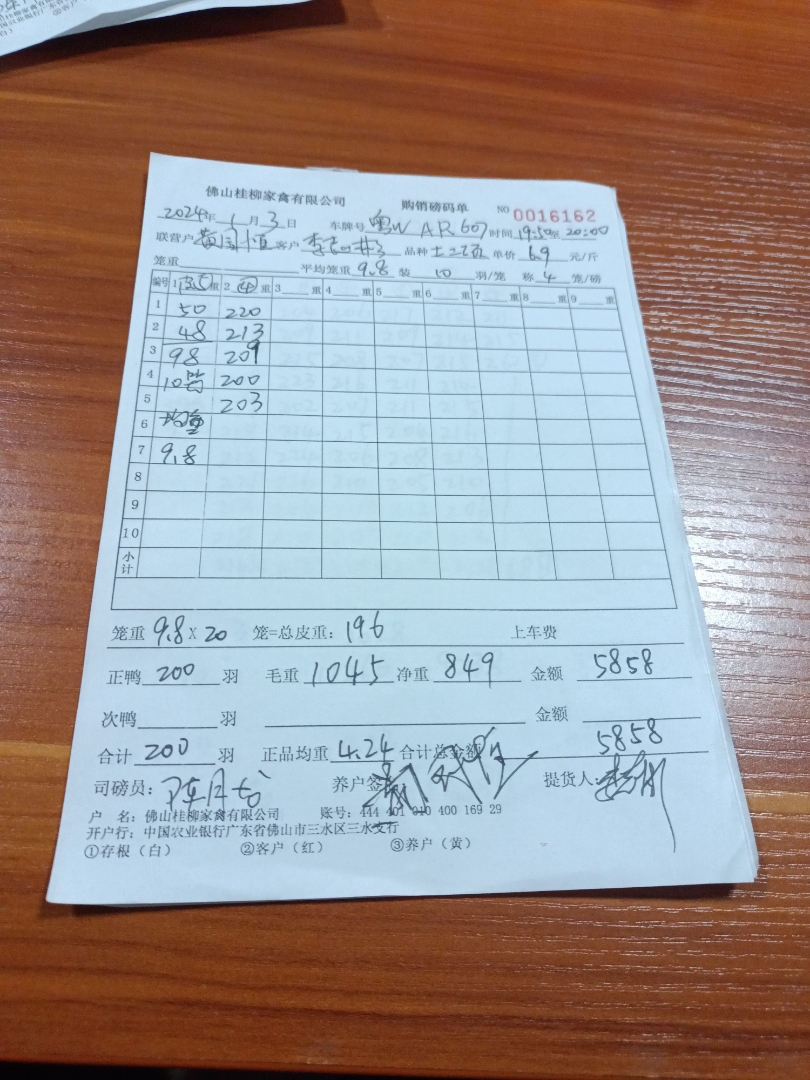 佛山桂柳家禽有限公司 购销磅码单 NO 0016162
2024年 1月 3日 车牌号 粤W AR607 时间 19:50至 20:00
联营户 黄国恒 客户 品种 单价 6.9 元/斤
笼重 平均笼重 9.8 装 10 羽/笼 称 4 笼/磅
编号 1 重 2 重 3 重 4 重 5 重 6 重 7 重 8 重 9 重
1 50 220
2 48 213
3 98 209
4 10 200
5 203
6 均重
7 9.8
8
9
10
小计
笼重 9.8 X 20 笼=总皮重: 196 上车费
正鸭 200 羽 毛重 1045 净重 849 金额 5858
次鸭 羽 金额
合计 200 羽 正品均重 4.24 合计总金额 5858
司磅员: 养户签 提货人:
户 名: 佛山桂柳家禽有限公司 账号: 444 401 010 400 169 29
开户行: 中国农业银行广东省佛山市三水区三水支行
①存根（白） ②客户（红） ③养户（黄）